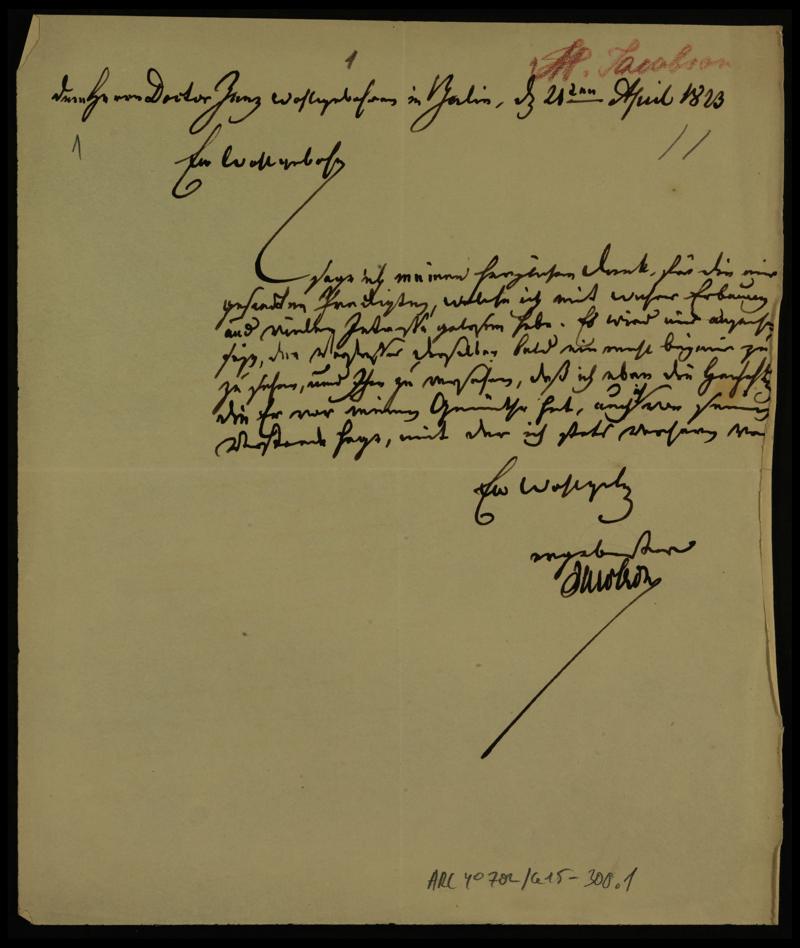 1
M. Jacobson
dem Herren Doctor Zunz Wohlgeboren in Berlin, d 21ten April 1823
1
//
Ew Wohlgebohr
sage ich meinen herzlichen Dank, für die mir
gesandten Predigten, welche ich mit wahrer Erbauung
und vielem Interesse gelesen habe. Es wird mir angenehm
seyn, den Verfasser derselben bald ein mahl bey mir zu
zu sehen, und Ihm zu versichern, daß ich eben die Hochach
die Er vor meinem Gemüthe hat, auch vor seinem
Verstande hege, mit der ich stets verharre
Ew Wohlgeb
ergebenster
Jacobson
ARC 4° 792/G15-300.1